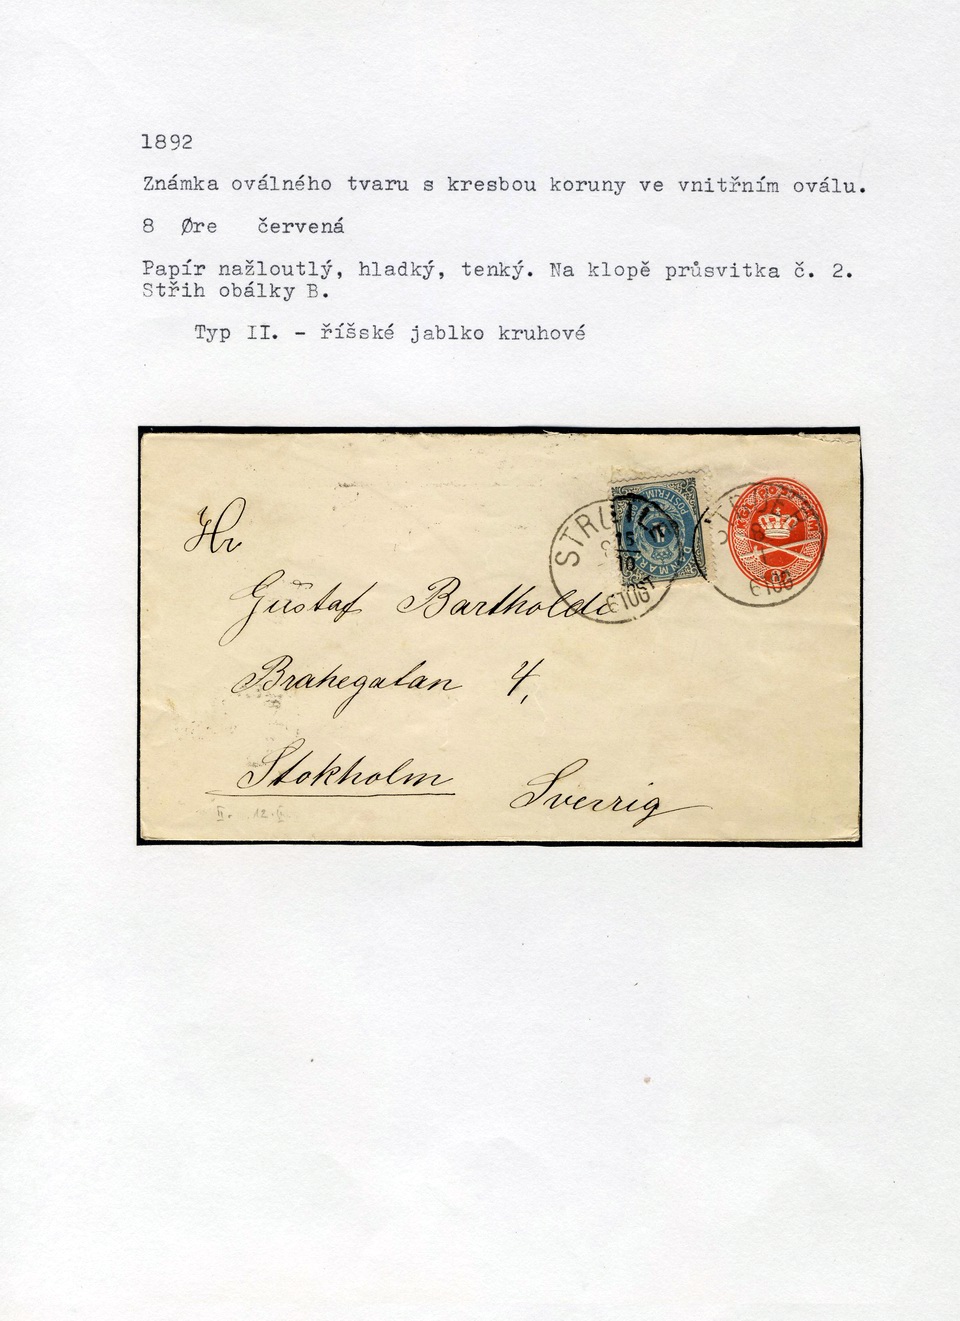 1892
Známka oválného tvaru s kresbou koruny ve vnitřním oválu.
8 Øre červená
Papír nažloutlý, hladký, tenký. Na klopě průsvitka č. 2.
Střih obálky B.
Typ II. - říšské jablko kruhové
Hr
Gustaf Bartholdi
Brahegatan 4,
Stokholm
Sverrig
DANMARK
POSTFRIM
II. 12.